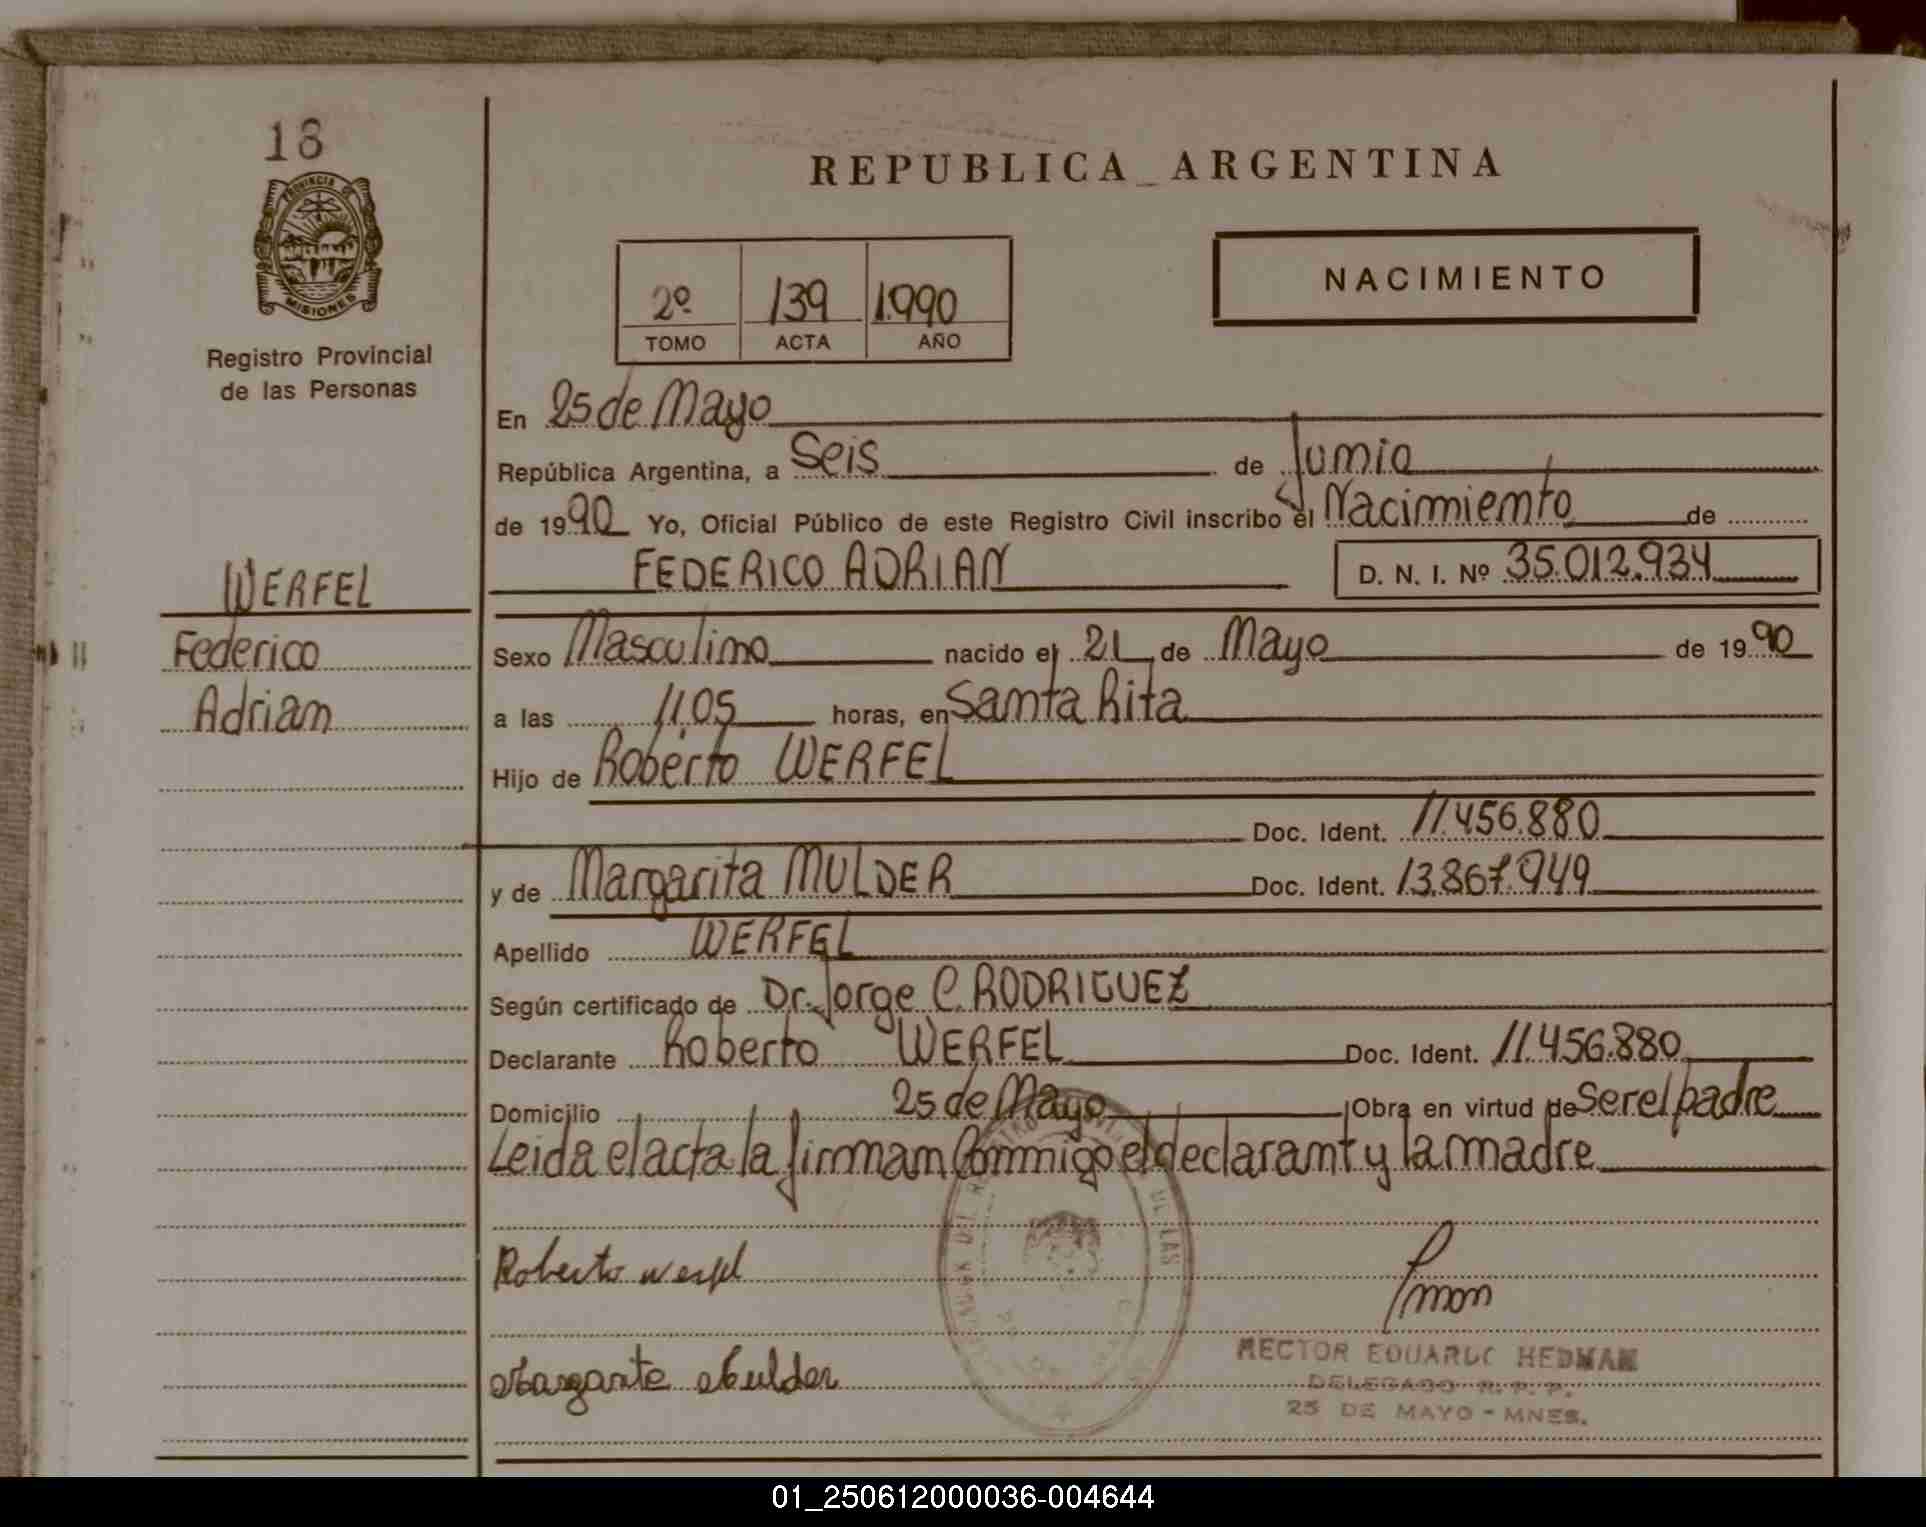 18
PROVINCIA DE
MISIONES
Registro Provincial
de las Personas
REPUBLICA ARGENTINA
NACIMIENTO
2º 139 1.990
TOMO ACTA AÑO
En 25 de Mayo
República Argentina, a Seis de Junio
de 1990 Yo, Oficial Público de este Registro Civil inscribo el Nacimiento de
FEDERICO ADRIAN D. N. I. Nº 35.012.934
WERFEL
Federico
Adrian
Sexo Masculino nacido el 21 de Mayo de 1990
a las 11.05 horas, en Santa Rita
Hijo de Roberto WERFEL
Doc. Ident. 11.456.880
y de Margarita MULDER Doc. Ident. 13.867.949
Apellido WERFEL
Según certificado de Dr. Jorge C. RODRIGUEZ
Declarante Roberto WERFEL Doc. Ident. 11.456.880
Domicilio 25 de Mayo Obra en virtud de ser el padre
Leida el acta la firman Conmigo el declarant y la madre
Roberto Werfel
Margarita Mulder
HECTOR EDUARDO HEDMAN
DELEGADO R. P. P.
25 DE MAYO - MNES.
01_250612000036-004644